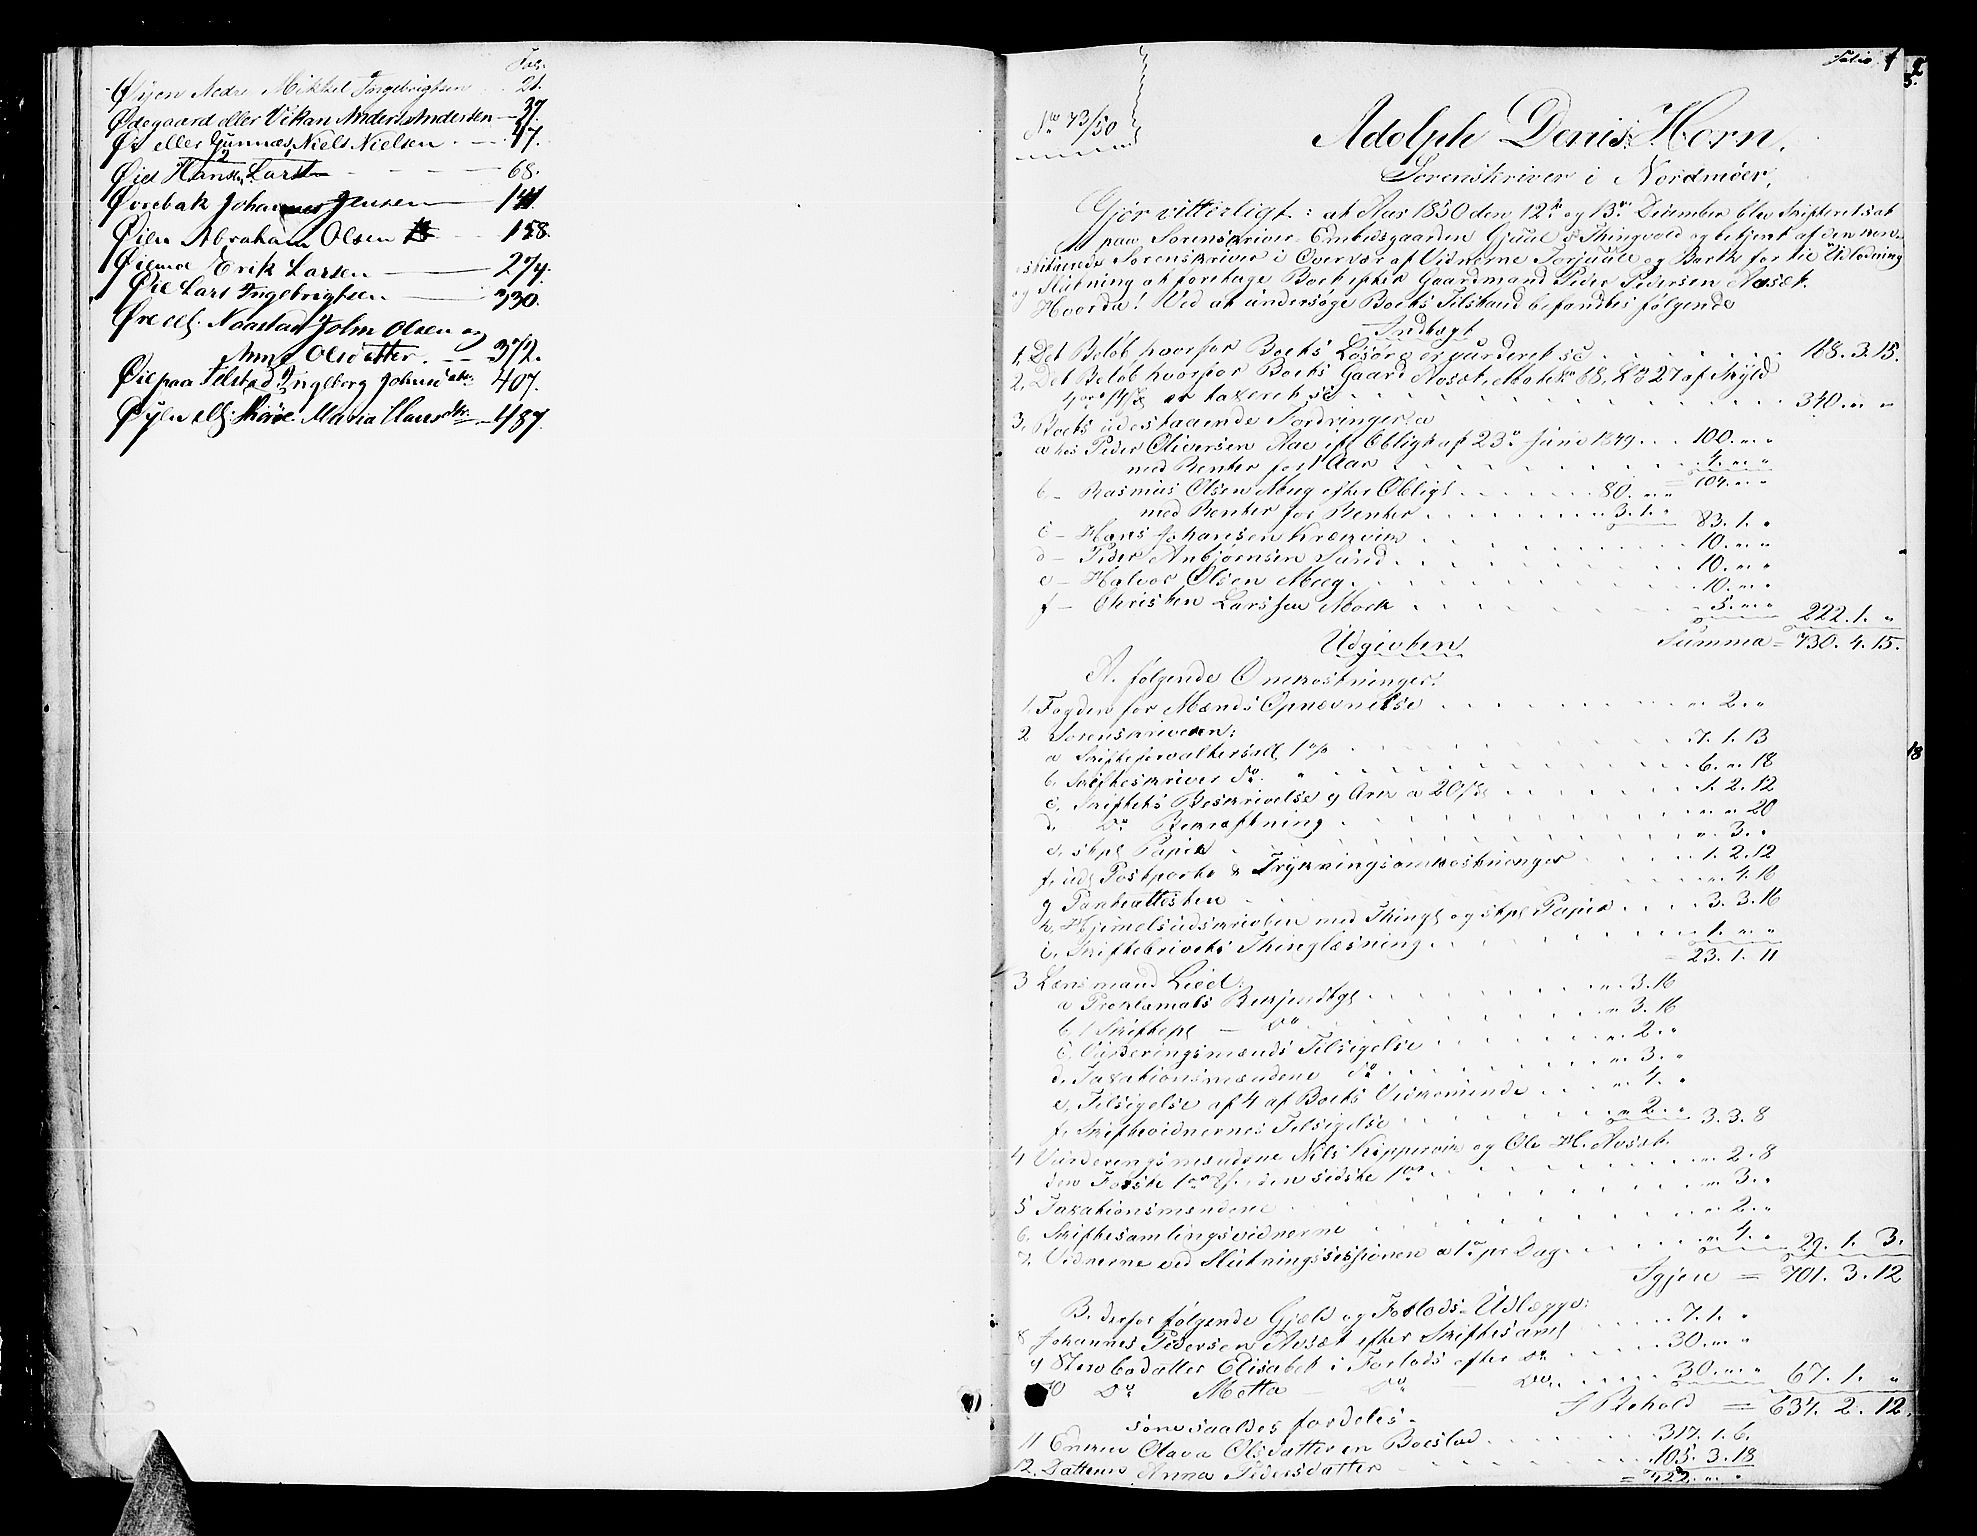 Fol.
Øyen Nedre Mikkel Ingebrigtsen 21.
Ødegaard eller Vikan Anders Andersen 37.
Øi eller Gunnæs, Niels Nielsen 47.
Øien Hans Lars 68.
Øvrebak Johannes Jensen 141.
Øien Abraham Olsen 158.
Erik Larsen 274.
Øie Lars Ingebrigtsen 330.
Øre ell: Naastad John Olsen og
Anne Olsdatter 372.
Øie paa Tilstad Ingeborg Johnsdtr 407.
Øyen ell: Maria Hansdtr 487.
Folio 1
No 73/50
Adolph Denis Horn,
Sorenskriver i Nordmøer,
Gjør vitterligt: at Aar 1850 den 12te og 13de December blev Skifteret sat
paa Sorenskriver-Embedsgaarden Gjúul i Thingvold og betjent af den con-
stituerede Sorenskriver i Overvær af Vidnerne Torjúul og Barth for til Udlodning
og Slútning at foretage Boet efter Gaardmand Peder Pedersen Aasæt.
Hvorda! Ved at úndersøge Boets Tilstand befandtes følgende
Indtægt
1, Det Beløb hvorfor Boets Løsøre er vúrderet se 168. 3. 15.
2, Det Beløb hvorfor Boets Gaard Aasæt, Mat. No 68, L. No 27 af Skyld
er taxeret se 340. " "
3, Boets údestaaende Fordringer:
a hos Peder Oliversen Aae ifl Obligt af 23de Júni 1849 100. " "
med Renter for 1 Aar 4. " "
104. " "
b - Rasmús Olsen Moeg efter Obligt 80. " "
med Renter for Renter 3. 1. " 83. 1. "
c - Hans Johansen 10. " "
d - Peder Anbjørnsen Súnd 10. " "
e - Halvor Olsen Moeg 10. " "
f - Christen Larssen Moek 5. " " 222. 1. "
Summa = 730. 4. 15.
Udgivten
A. følgende Omkostninger:
1. Fogden for Mænds Opnævnelse " 2. "
2 Sorenskriveren:
a Skifteforvaltersal 1 % 7. 1. 13
b. Skifteskriver do. " 6. " 18
c, Skiftets Beskrivelse 9 Ark a 20 1. 2. 12
d. Do Bekræftning " " 20
e, stpl Papir " 3. "
f. údl Postporto & Trykningsomkostninger 1. 2. 12
g Panteattesten " 4. 16
h, Hjemelsúdskrivten med Thingl og stpl Papir 3. 3. 16
i, Skiftebrevets Thinglæsning 1. " "
23. 1. 11
3 Lænsmand Lied:
a Proklamats Bekjendtgl " 3. 16
b, 1 Skiftepl - Do " 3. 16
c. Vúrderingsmænds Tilsigelse " 2. "
d. Taxationsmændene do " 3. "
e, Tilsigelse af 4 af Boets Vedkomende " 4. "
f. Skiftevidnernes Tilsigelse " 2. " 3. 3. 8
4 Vúrderingsmændene Nils og Ole H. Aasæt.
den Første den sidste " 2. 8
5 Taxationsmændene " 3. "
6. Skiftesamlingsvidnerne " 2. "
7. Vidnerne ved Slútningssessionen a 1o pr Dag " 4. " 29. 1. 3.
Igjen = 701. 3. 12
B. derfor følgende Gjæld og Forlods-Udlægge:
8 Johannes Pedersen Aasæt efter Skiftesaml 7. 1. "
9 Elisabet i Forlods efter do 30. " "
10 Do Metta - Do - Do 30. " " 67. 1. "
I Behold = 634. 2. 12.
som saaldes fordeles.
11 Enken Olava Olsdatter en Boeslod 317. 1. 6.
12. Datteren Anna Pedersdatter 105. 3. 18
= 422. " "